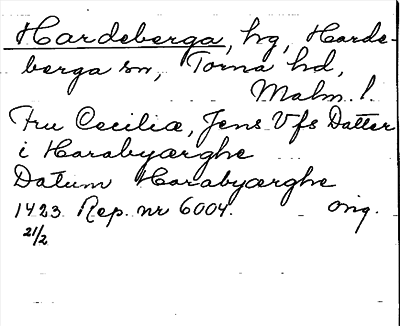 Hardeberga, hg, Harde-
berga sn, Torna hd,
Malm. l.
Fru Cecilia, Jens Ufs Datter
i Harabyærghe
Datum Harabyærghe
1423 Rep. nr 6004. orig.
21/2